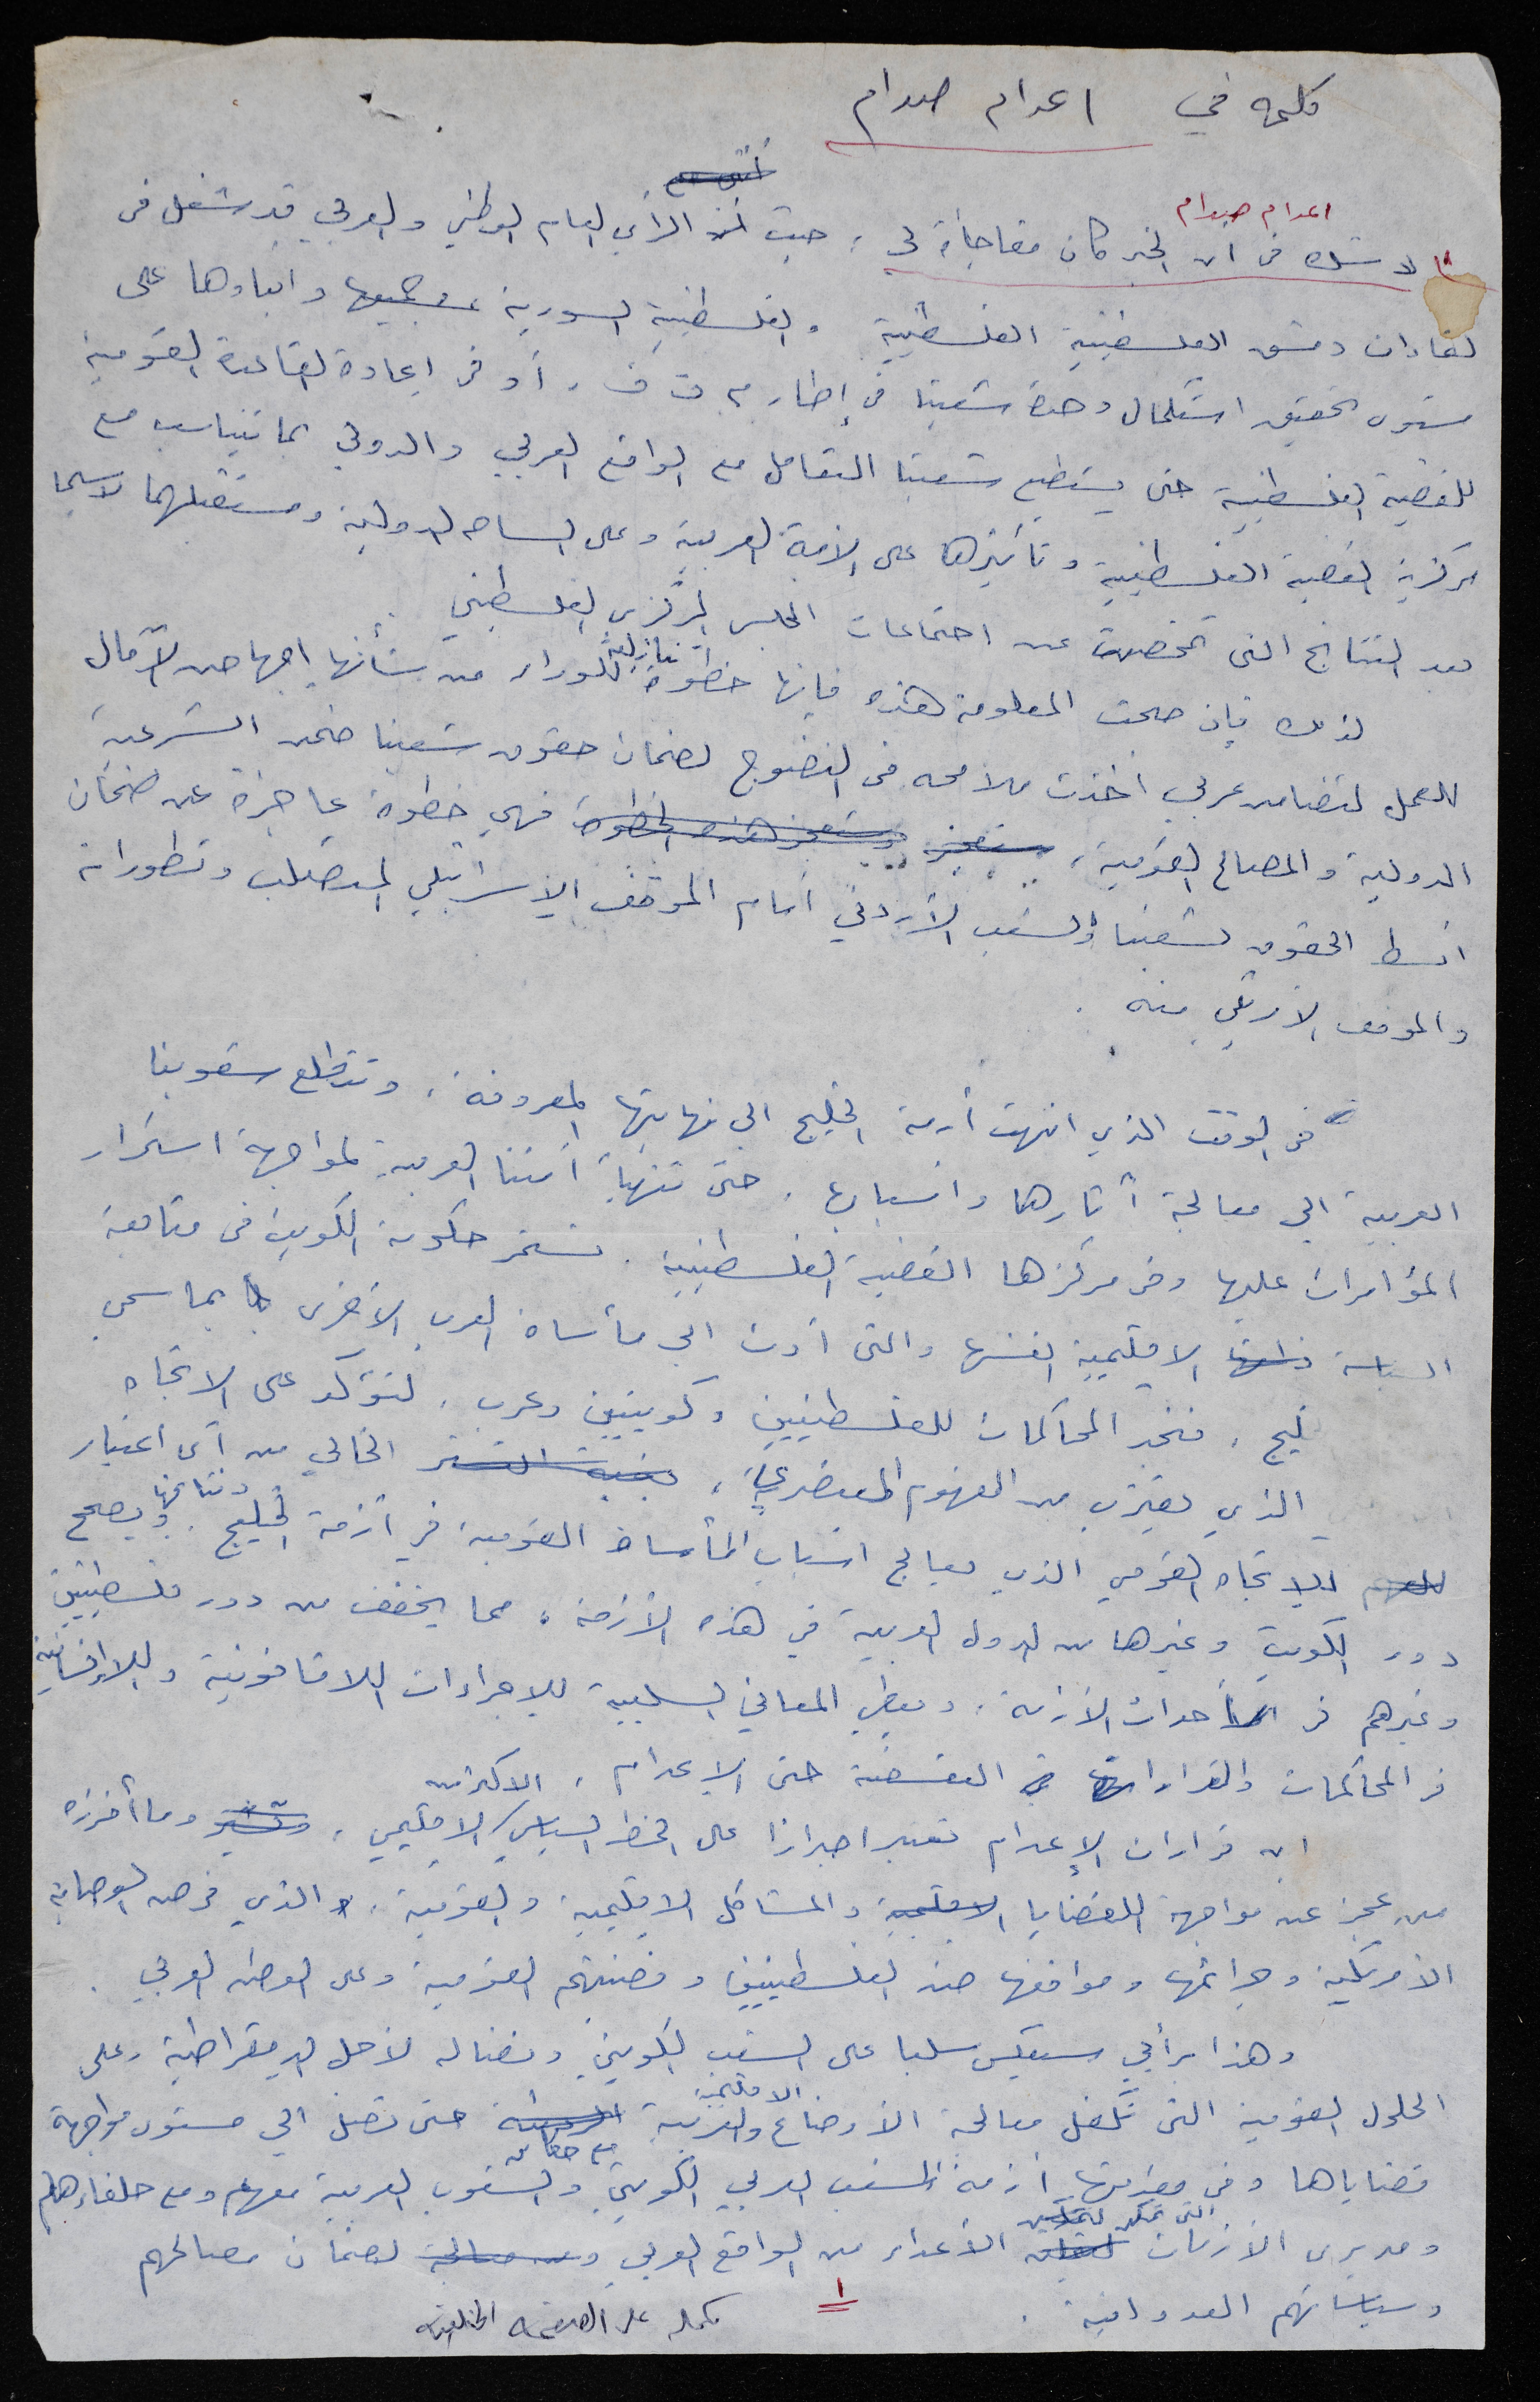 كلمة في اعدام صدام
اعدام صدام
لا شك في ان الخبر كان مفاجأة لي، حيث أن الرأي العام الوطني والعربي قد شغل في
لقاءات دمشق الفلسطينية الفلسطينية والفلسطينية السورية وابعادها على
مستوى تحقيق استكمال وحدة شعبنا في إطار م ت ف، أو في إعادة القاعدة القومية
للقضية الفلسطينية حتى يستطيع شعبنا التعامل مع الواقع العربي والدولي بما يتناسب مع
مركزية القضية الفلسطينية وتأثيرها على الأمة العربية وعلى الساحة الدولية ومستقبلهما لاسيما
بعد النتائج التي تمخضت عن اجتماعات المجلس المركزي الفلسطيني
لذلك فإن صحت المعلومة هذه فإنها خطوة تنازلية للوراء من شأنها إجهاض الآمال
للعمل لتضامن عربي أخذت ملامحه في النضوج لضمان حقوق شعبنا ضمن الشرعية
الدولية والمصالح القومية، فهي خطوة عاجزة عن ضمان
ابسط الحقوق لشعبنا والشعب الأردني أمام الموقف الإسرائيلي المتصلب وتطوراته
والموقف الأمريكي منه.
في الوقت الذي انتهت أزمة الخليج الى نهايتها المعروفة، وتتطلع شعوبنا
العربية الى معالجة آثارها واسبابها، حتى تتهيأ أمتنا العربية لمواجهة استمرار
المؤامرات عليها وفي مركزها القضية الفلسطينية. تستمر حكومة الكويت في متابعة
السياسة الاقليمية نفسها والتي أدت الى مأساة العرب الأخرى بما سمي
خليج، فنجد المحاكمات للفلسطينيين وكويتيين وعرب، لتؤكد على الاتجاه
الذي يقترب من المفهوم العنصري، الخالي من أي اعتبار
للاتجاه القومي الذي يعالج اسباب المأساة القومية في أزمة الخليج ونتائجها ويصحح
دور الكويت وغيرها من الدول العربية في هذه الأزمة، مما يخفف من دور فلسطينيين
وغيرهم في أحداث الأزمة، ويعطي المعاني السلبية للإجراءات اللاقانونية واللاإنسانية
في المحاكمات والقرارات التعسفية حتى الإعدام،
ان قرارات الإعدام تعتبر اصرارا على الخط السياسي الإقليمي، وما أفرزه
من عجز عن مواجهة القضايا والمشاكل الاقليمية والقومية، والذي فرض الوصاية
الأمريكية وجرائمها ومواقفها ضد الفلسطينيين وقضيتهم القومية وعلى الوطن العربي.
وهذا برأيي سينعكس سلبا على الشعب الكويتي ونضاله لأجل الديمقراطية وعلى
الحلول القومية التي تكفل معالجة الأوضاع الاقليمية والعربية حتى تصل الى مستوى مواجهة
قضاياها وفي مقدمتها أزمة الشعب العربي الكويتي والشعوب العربية معهم ومع حلفاءهم
ومديري الأزمات التي تمكن الأعداء من الواقع العربي لضمان مصالحهم
وسياساتهم العدوانية.
١
تكملة على الصفحة الخلفية